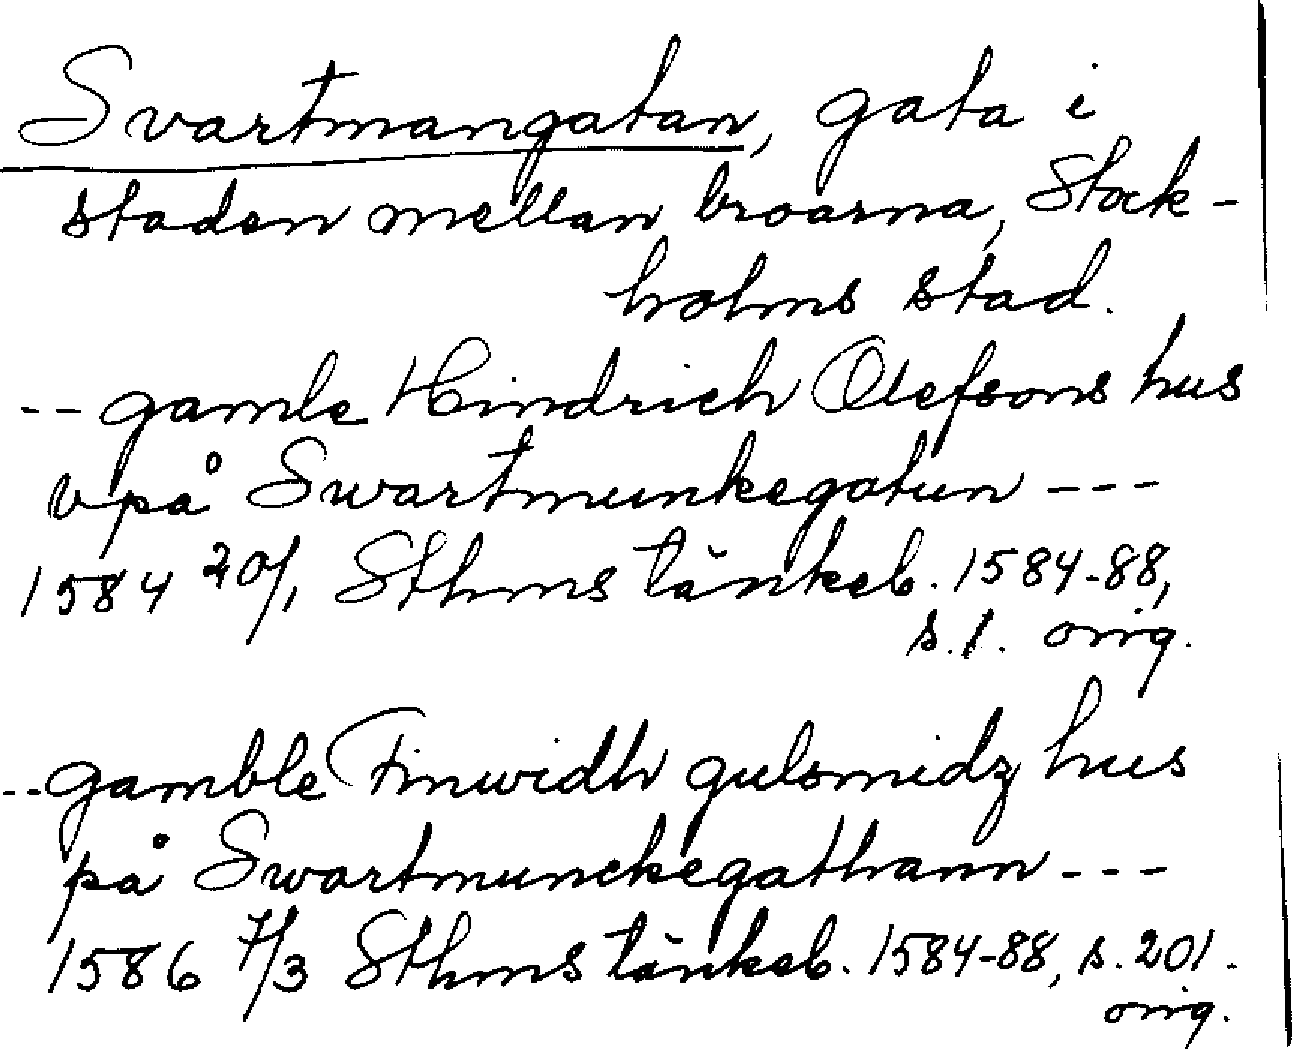 Svartmangatan, gata i
staden mellan broarna, Stock-
holms stad.
-- gamle Hindrich Olefsons hus
vpå Swartmunkegatun ---
1584 20/1 Sthms tänkeb. 1584-88,
s. 1. orig.
-- gamble Finwidh gulsmidz hus
på Swartmunckegathann ---
1586 7/3 Sthms tänkeb. 1584-88, s. 201.
orig.